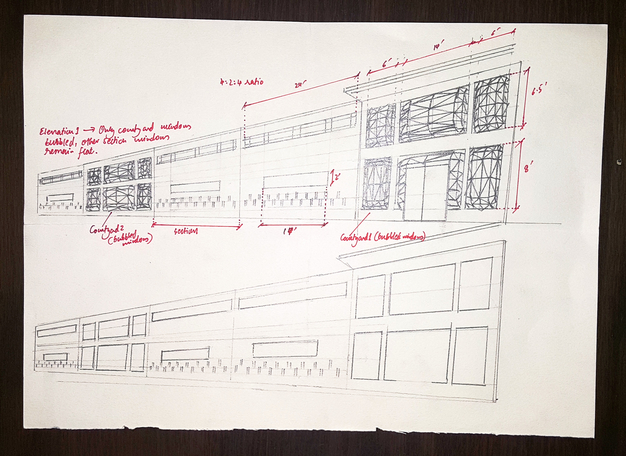 6' 10' 6'
4:2:4 ratio
6.5'
Elevation 1 → Only courtyard windows
bubbled, other section windows
remain flat.
2'
8'
Courtyard 2
(bubbled
windows)
section 1
Courtyard 1 (bubbled windows)